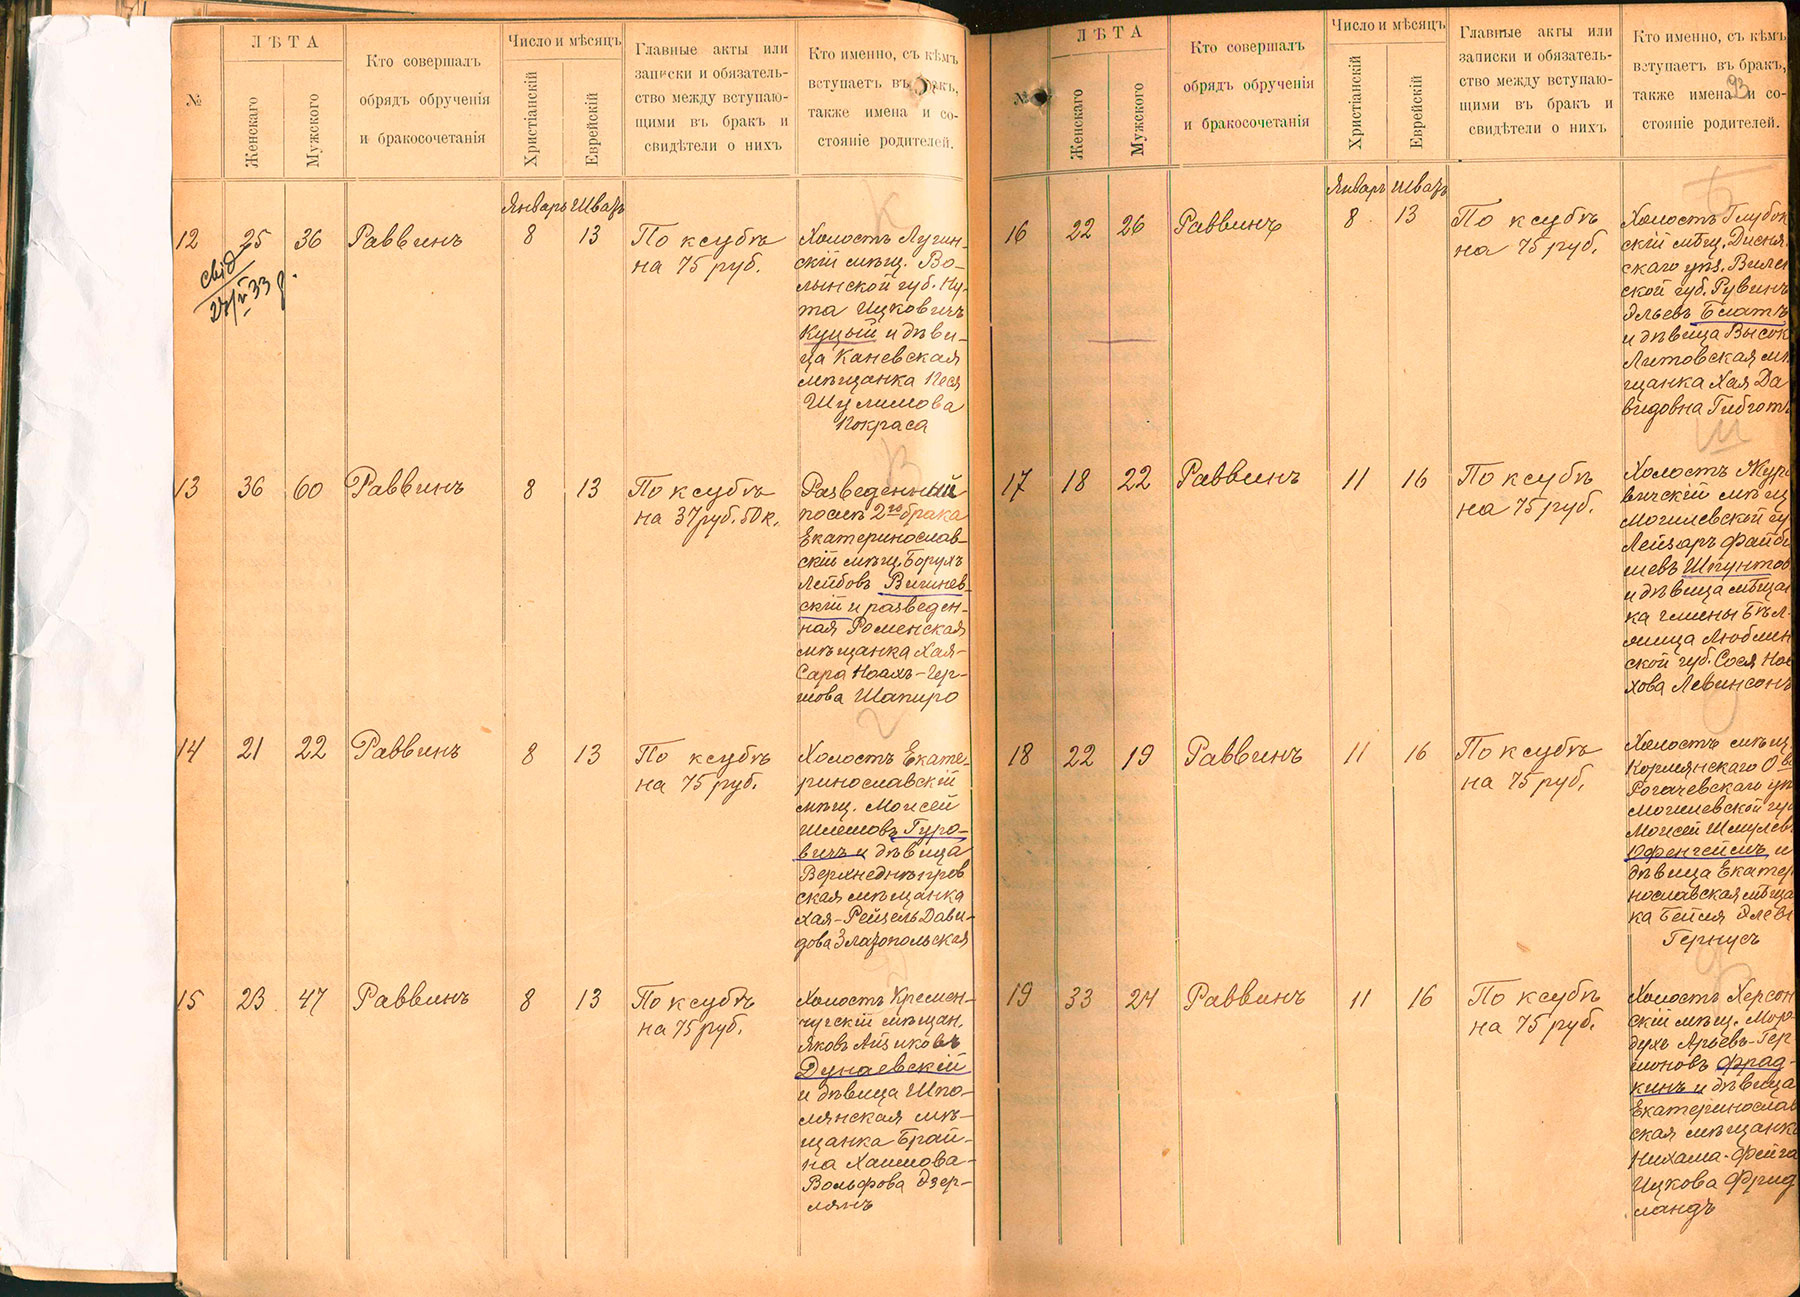 №
ЛѢТА
Женскаго
Мужского
Кто совершалъ
обрядъ обрученія
и бракосочетанія
Число и мѣсяцъ
Христіанскій
Еврейскій
Главные акты или
записки и обязатель-
ство между вступаю-
щими въ бракъ и
свидѣтели о нихъ
Кто именно, съ кѣмъ
вступаетъ въ бракъ,
также имена и со-
стояніе родителей.
Январь Шватъ
12 25 36 Раввинъ 8 13
По ксубѣ
на 75 руб.
Холостъ Лугин-
скій мѣщ. Во-
лынской губ. Ну-
та Ицковичъ
Куцый и дѣви-
ца Каневская
мѣщанка Песя
Шулимова
Покраса
13 36 60 Раввинъ 8 13
По ксубѣ
на 37 руб. 50 к.
Разведенный
послѣ 2го брака
Екатеринослав-
скій мѣщ. Борухъ
Лейбовъ Вишнев-
скій и разведен-
ная Роменская
мѣщанка Хая-
Сара Ноахъ-Гер-
шова Шапиро
14 21 22 Раввинъ 8 13
По ксубѣ
на 75 руб.
Холостъ Екате-
ринославскій
мѣщ. Моисей
Шлемовъ Гуро-
вичъ и дѣвица
Верхнеднѣпров
ская мѣщанка
Хая-Рейзель Дави-
дова Златопольская
15 23 47 Раввинъ 8 13
По ксубѣ
на 75 руб.
Холостъ Кремен-
чугскій мѣщан.
Яковъ Айзиковъ
Дунаевскій
и дѣвица Шпо-
лянская мѣ-
щанка Брай-
на Хаимова-
Вольфова Дзер-
лянъ
№
ЛѢТА
Женскаго
Мужского
Кто совершалъ
обрядъ обрученія
и бракосочетанія
Число и мѣсяцъ
Христіанскій
Еврейскій
Главные акты или
записки и обязатель-
ство между вступаю-
щими въ бракъ и
свидѣтели о нихъ
Кто именно, съ кѣмъ
вступаетъ въ бракъ,
также имена и со-
стояніе родителей.
93
Январь Шватъ
16 22 26 Раввинъ 8 13
По ксубѣ
на 75 руб.
Холостъ Глубок
скій мѣщ. Дисня
скаго уѣз. Вилен
ской губ. Рувинъ
Эльевъ Блатъ
и дѣвица Высок
Литовская мѣ
щанка Хая Да
видовна Гибготъ
17 18 22 Раввинъ 11 16
По ксубѣ
на 75 руб.
Холостъ Жура
вичскій мѣщ
Могилевской гу
Лейзаръ Файби
шевъ Шпунтов
и дѣвица мѣщан
ка гмины Бѣл-
жица Люблин
ской губ. Сося Нов
хова Левинсонъ
18 22 19 Раввинъ 11 16
По ксубѣ
на 75 руб.
Холостъ мѣщ.
Кормянскаго О-ва
Рогачевскаго уѣ
Могилевской губ
Моисей Шмулевъ
Офенгеймъ и
дѣвица Екатери
нославская мѣща
ка Бейля Элева
Гернусъ
19 33 24 Раввинъ 11 16
По ксубѣ
на 75 руб.
Холостъ Херсон
скій мѣщ. Мор-
духъ Арьевъ-Гер-
шоновъ Фрад-
кинъ и дѣвица
Екатеринослав
ская мѣщанка
Нихама-Фейга
Ицкова Фрид
ландъ